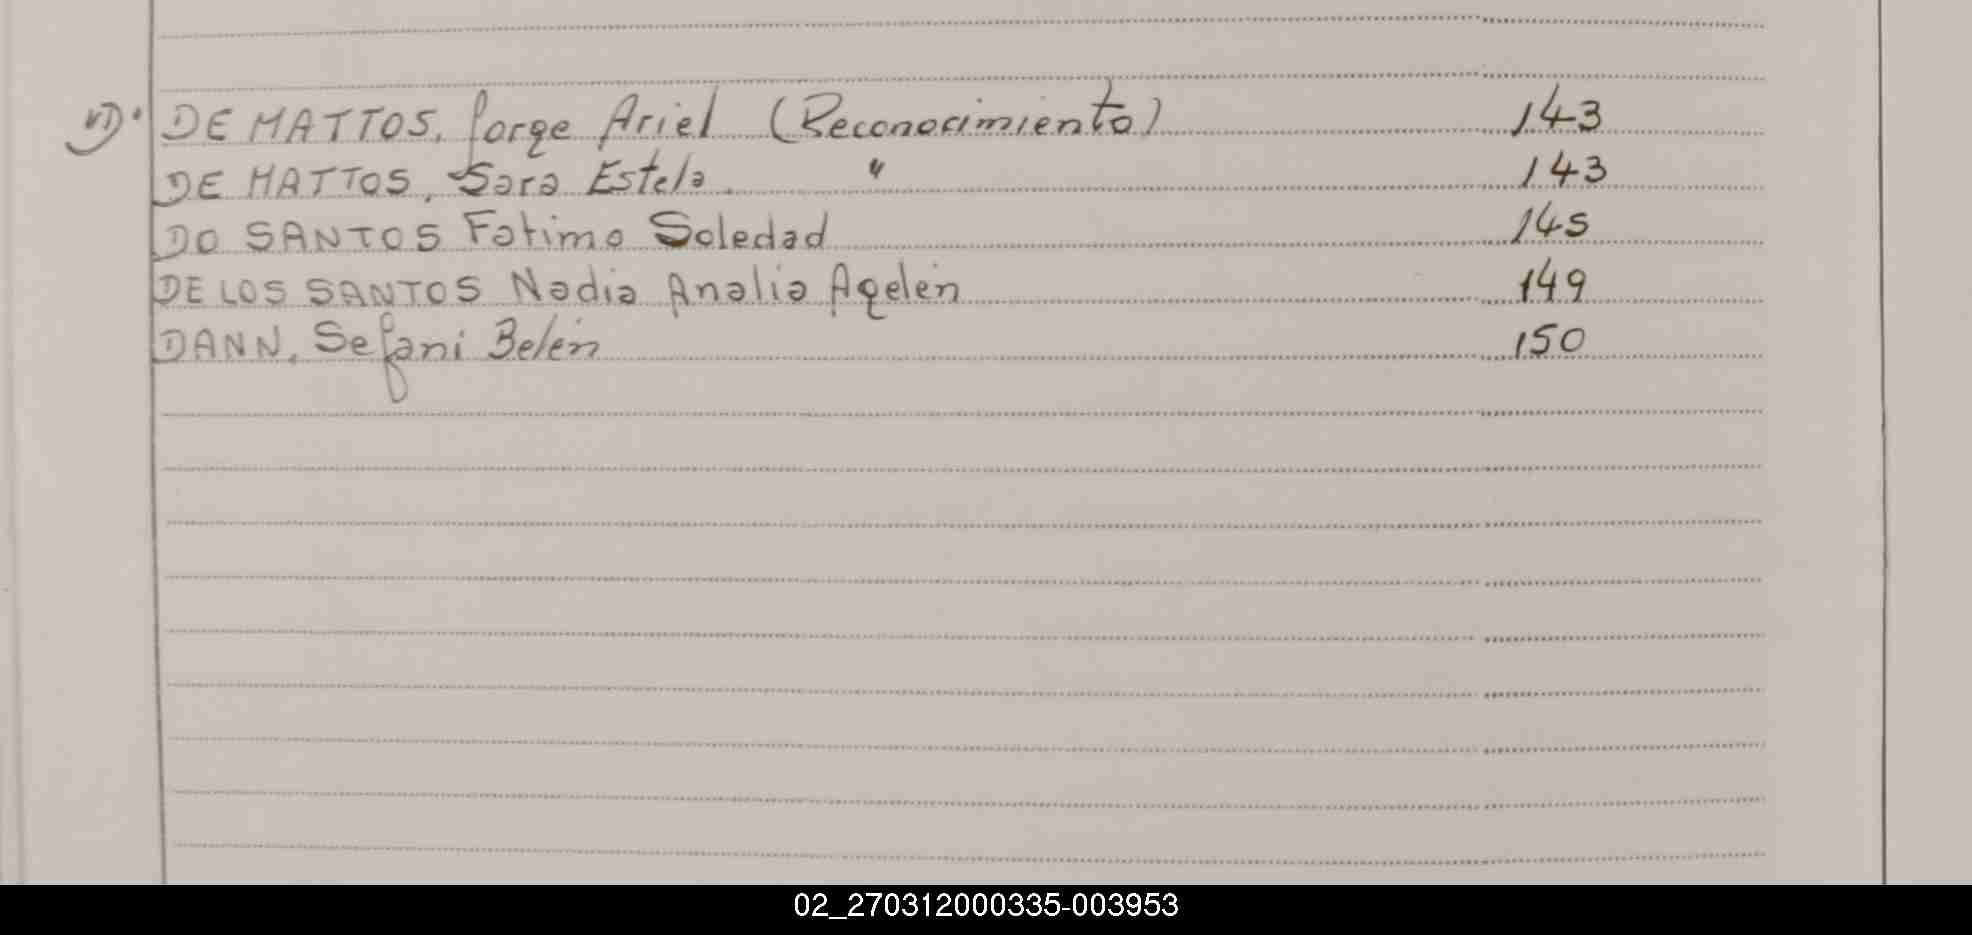 DE MATTOS, Jorge Ariel (Reconocimiento) 143
DE MATTOS, Sara Estela. " 143
DO SANTOS Fatima Soledad 145
DE LOS SANTOS Nadia Analia Aqelén 149
DANN, Sefani Belén 150
02_270312000335-003953